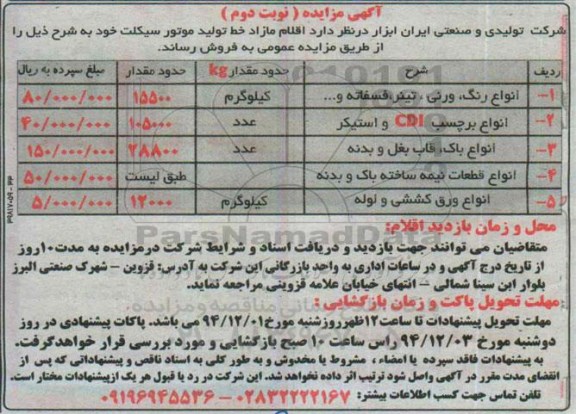 آگهی مزایده ( نوبت دوم )
شرکت تولیدی و صنعتی ایران ابزار درنظر دارد اقلام مازاد خط تولید موتور سیکلت خود به شرح ذیل را
از طریق مزایده عمومی به فروش رساند.
ردیف شرح حدود مقدار kg حدود مقدار مبلغ سپرده به ریال
۱- انواع رنگ، ورنی ، تینر فسفاته و... کیلوگرم ۱۵۵۰۰ ۸۰/۰۰۰/۰۰۰
۲- انواع برچسب CDI و استیکر عدد ۱۰۵۰۰۰ ۴۰/۰۰۰/۰۰۰
۳- انواع باک، قاب بغل و بدنه عدد ۲۸۸۰۰ ۱۵۰/۰۰۰/۰۰۰
۴- انواع قطعات نیمه ساخته باک و بدنه طبق لیست ۵۰/۰۰۰/۰۰۰
۵- انواع ورق کششی و لوله کیلوگرم ۱۲۰۰۰ ۵/۰۰۰/۰۰۰
محل و زمان بازدید اقلام:
متقاضیان می توانند جهت بازدید و دریافت اسناد و شرایط شرکت درمزایده به مدت۱۰روز
از تاریخ درج آگهی و در ساعات اداری به واحد بازرگانی این شرکت به آدرس: قزوین – شهرک صنعتی البرز
بلوار ابن سینا شمالی – انتهای خیابان علامه قزوینی مراجعه نماید.
مهلت تحویل پاکت و زمان بازگشایی :
مهلت تحویل پیشنهادات تا ساعت۱۲ظهر روزشنبه مورخ ۹۴/۱۲/۰۱ می باشد. پاکات پیشنهادی در روز
دوشنبه مورخ ۹۴/۱۲/۰۳ راس ساعت ۱۰ صبح بازگشایی و مورد بررسی قرار خواهدگرفت.
به پیشنهادات فاقد سپرده یا امضاء ، مشروط یا مخدوش و به طور کلی به اسناد ناقص و پیشنهاداتی که پس از
انقضای مدت مقرر در آگهی واصل شود ترتیب اثر داده نخواهد شد. این شرکت در رد یا قبول هر یک ازپیشنهادات مختار است.
تلفن تماس جهت کسب اطلاعات بیشتر: ۰۲۸۳۲۲۲۲۱۶۷ – ۰۹۱۹۶۹۴۵۵۳۶
ParsNamadData